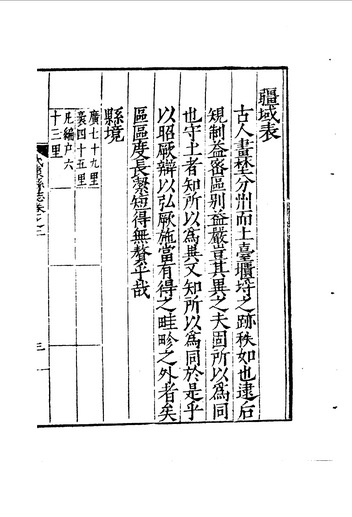 疆域表
古人畫埜分州而土臺壝埒之跡秩如也逮后
規制益密區別益嚴豈其異之夫固所以為同
也守土者知所以為異又知所以為同於是乎
以昭厥辯以弘厥施當有得之畦畛之外者矣
區區度長絜短得無贅乎哉
縣境
廣七十九里
袤四十五里
凡編户六
十三里
縣志卷之一
三